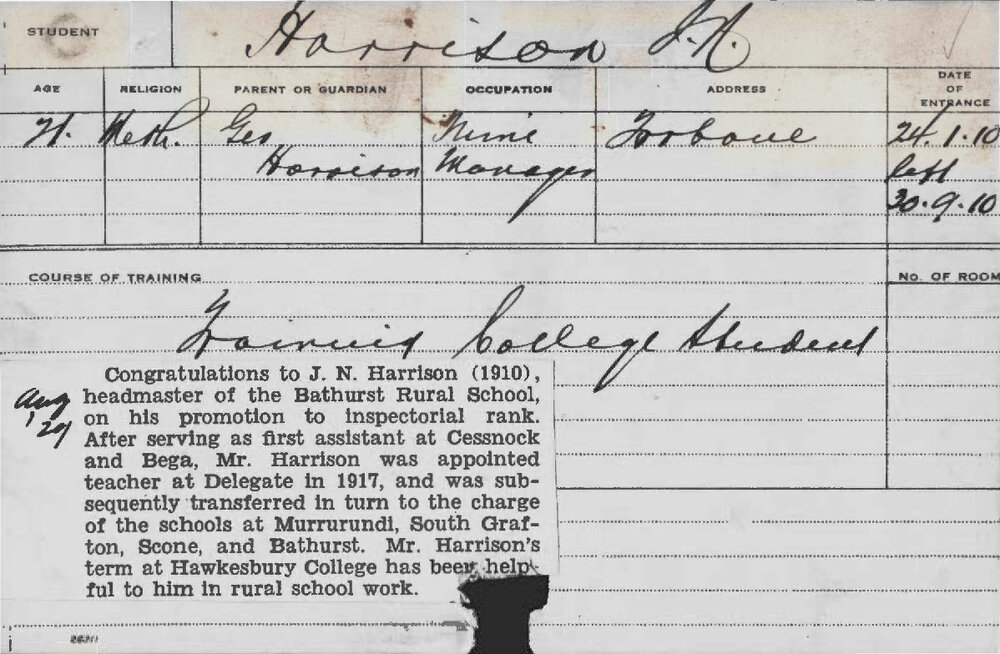 STUDENT Harrison J. N.
AGE RELIGION PARENT OR GUARDIAN OCCUPATION ADDRESS DATE OF ENTRANCE
21. Meth. Geo Mine 24.1.10
Harrison Manager left
30.9.10
COURSE OF TRAINING No. OF ROOM
Training College Student
Aug 29
Congratulations to J. N. Harrison (1910),
headmaster of the Bathurst Rural School,
on his promotion to inspectorial rank.
After serving as first assistant at Cessnock
and Bega, Mr. Harrison was appointed
teacher at Delegate in 1917, and was sub-
sequently transferred in turn to the charge
of the schools at Murrurundi, South Graf-
ton, Scone, and Bathurst. Mr. Harrison's
term at Hawkesbury College has been help-
ful to him in rural school work.